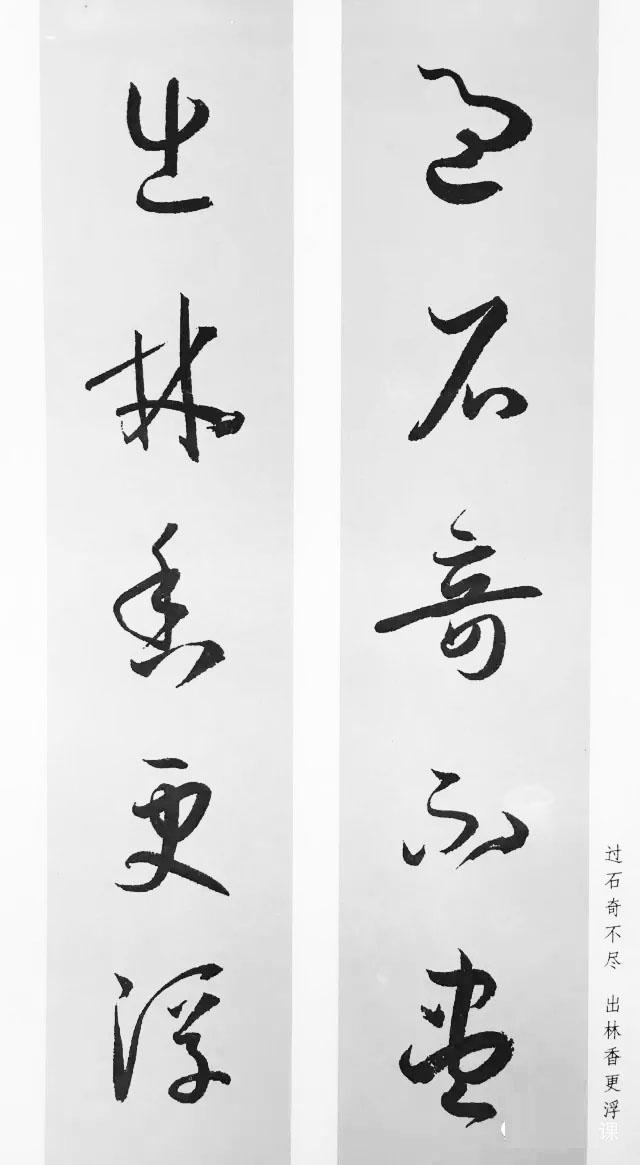 過石奇不盡
出林香更浮
过石奇不尽 出林香更浮
课